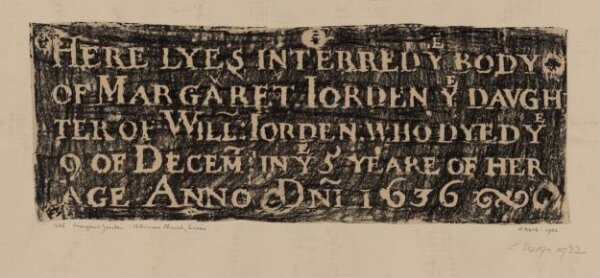 HERE LYES INTERRED Yᴱ BODY
OF MARGARET IORDEN Yᴱ DAVGH-
TER OF WILL: IORDEN WHO DYED Yᴱ
9 OF DECEM̃ IN Yᴱ 5 YEARE OF HER
AGE ANNO DÑI 1636
1636 Margaret Jorden
1932